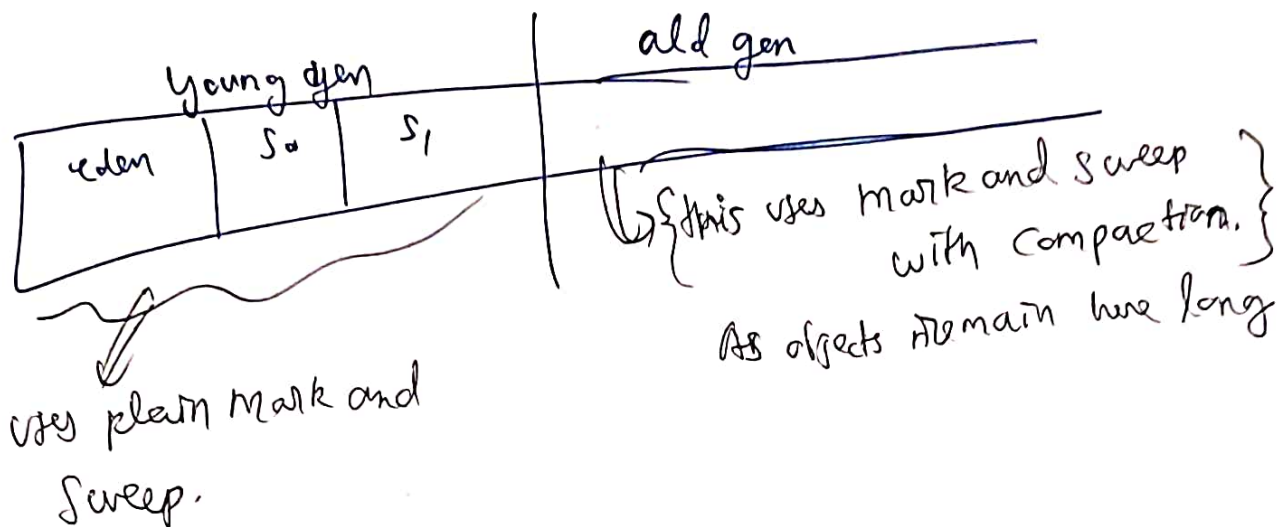 young gen
old gen
eden
S0
S1
{this uses mark and sweep
with compaction.}
As objects remain here long
uses plain mark and
sweep.